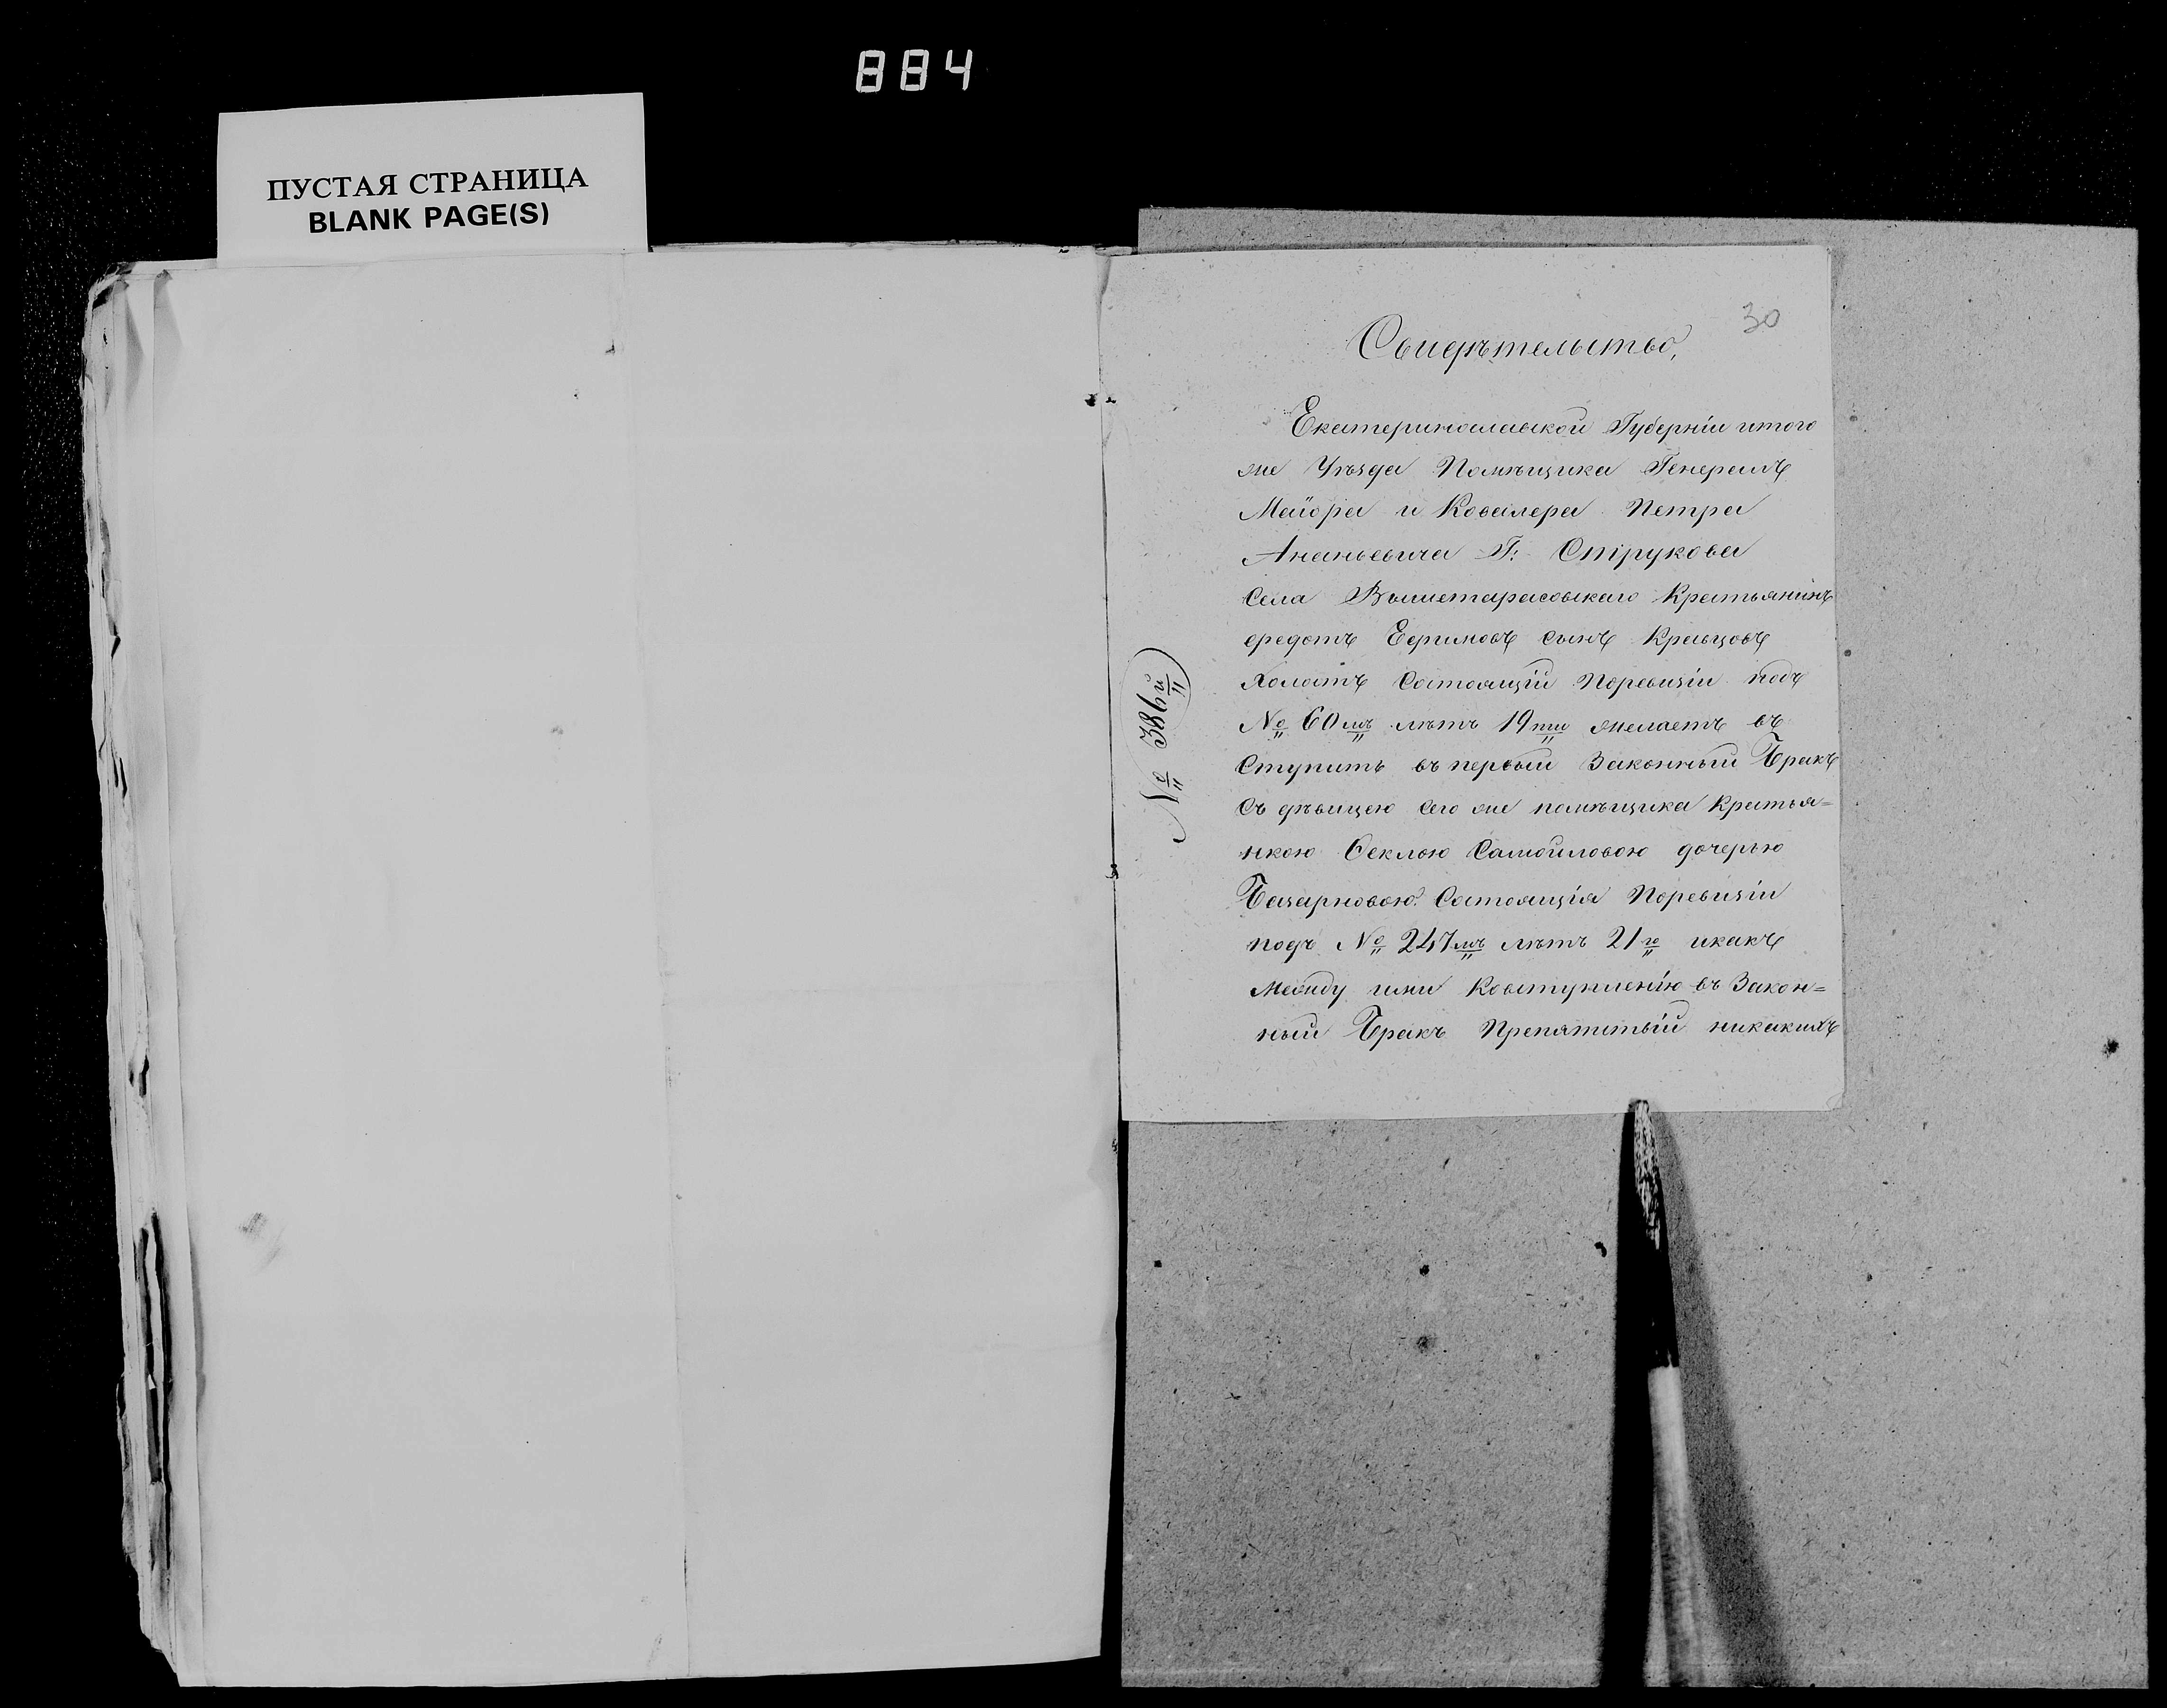 884
ПУСТАЯ СТРАНИЦА
BLANK PAGE(S)
30
Свидѣтельство,
Екатеринославской Губерніи итого
же Уѣзда Помѣщика Генералъ
Маіора и Кавалера Петра
Ананьевича Г: Струкова
Села Вышетарасовскаго Крестьянинъ
Ефимовъ сынъ Кравцовъ
холостъ Состоящій Поревизіи подъ
№ 60мъ лѣтъ 19ти желаетъ въ
Ступить въ первый Законный Бракъ
съ дѣвицею сего же помѣщика Крестья=
нкою Феклою Самойловою дочерью
Состоящія Поревизіи
подъ № 247мъ лѣтъ 21го икакъ
Между ими Ковступленію въ Закон=
ный Бракъ Препятствій никакихъ
№ 386й